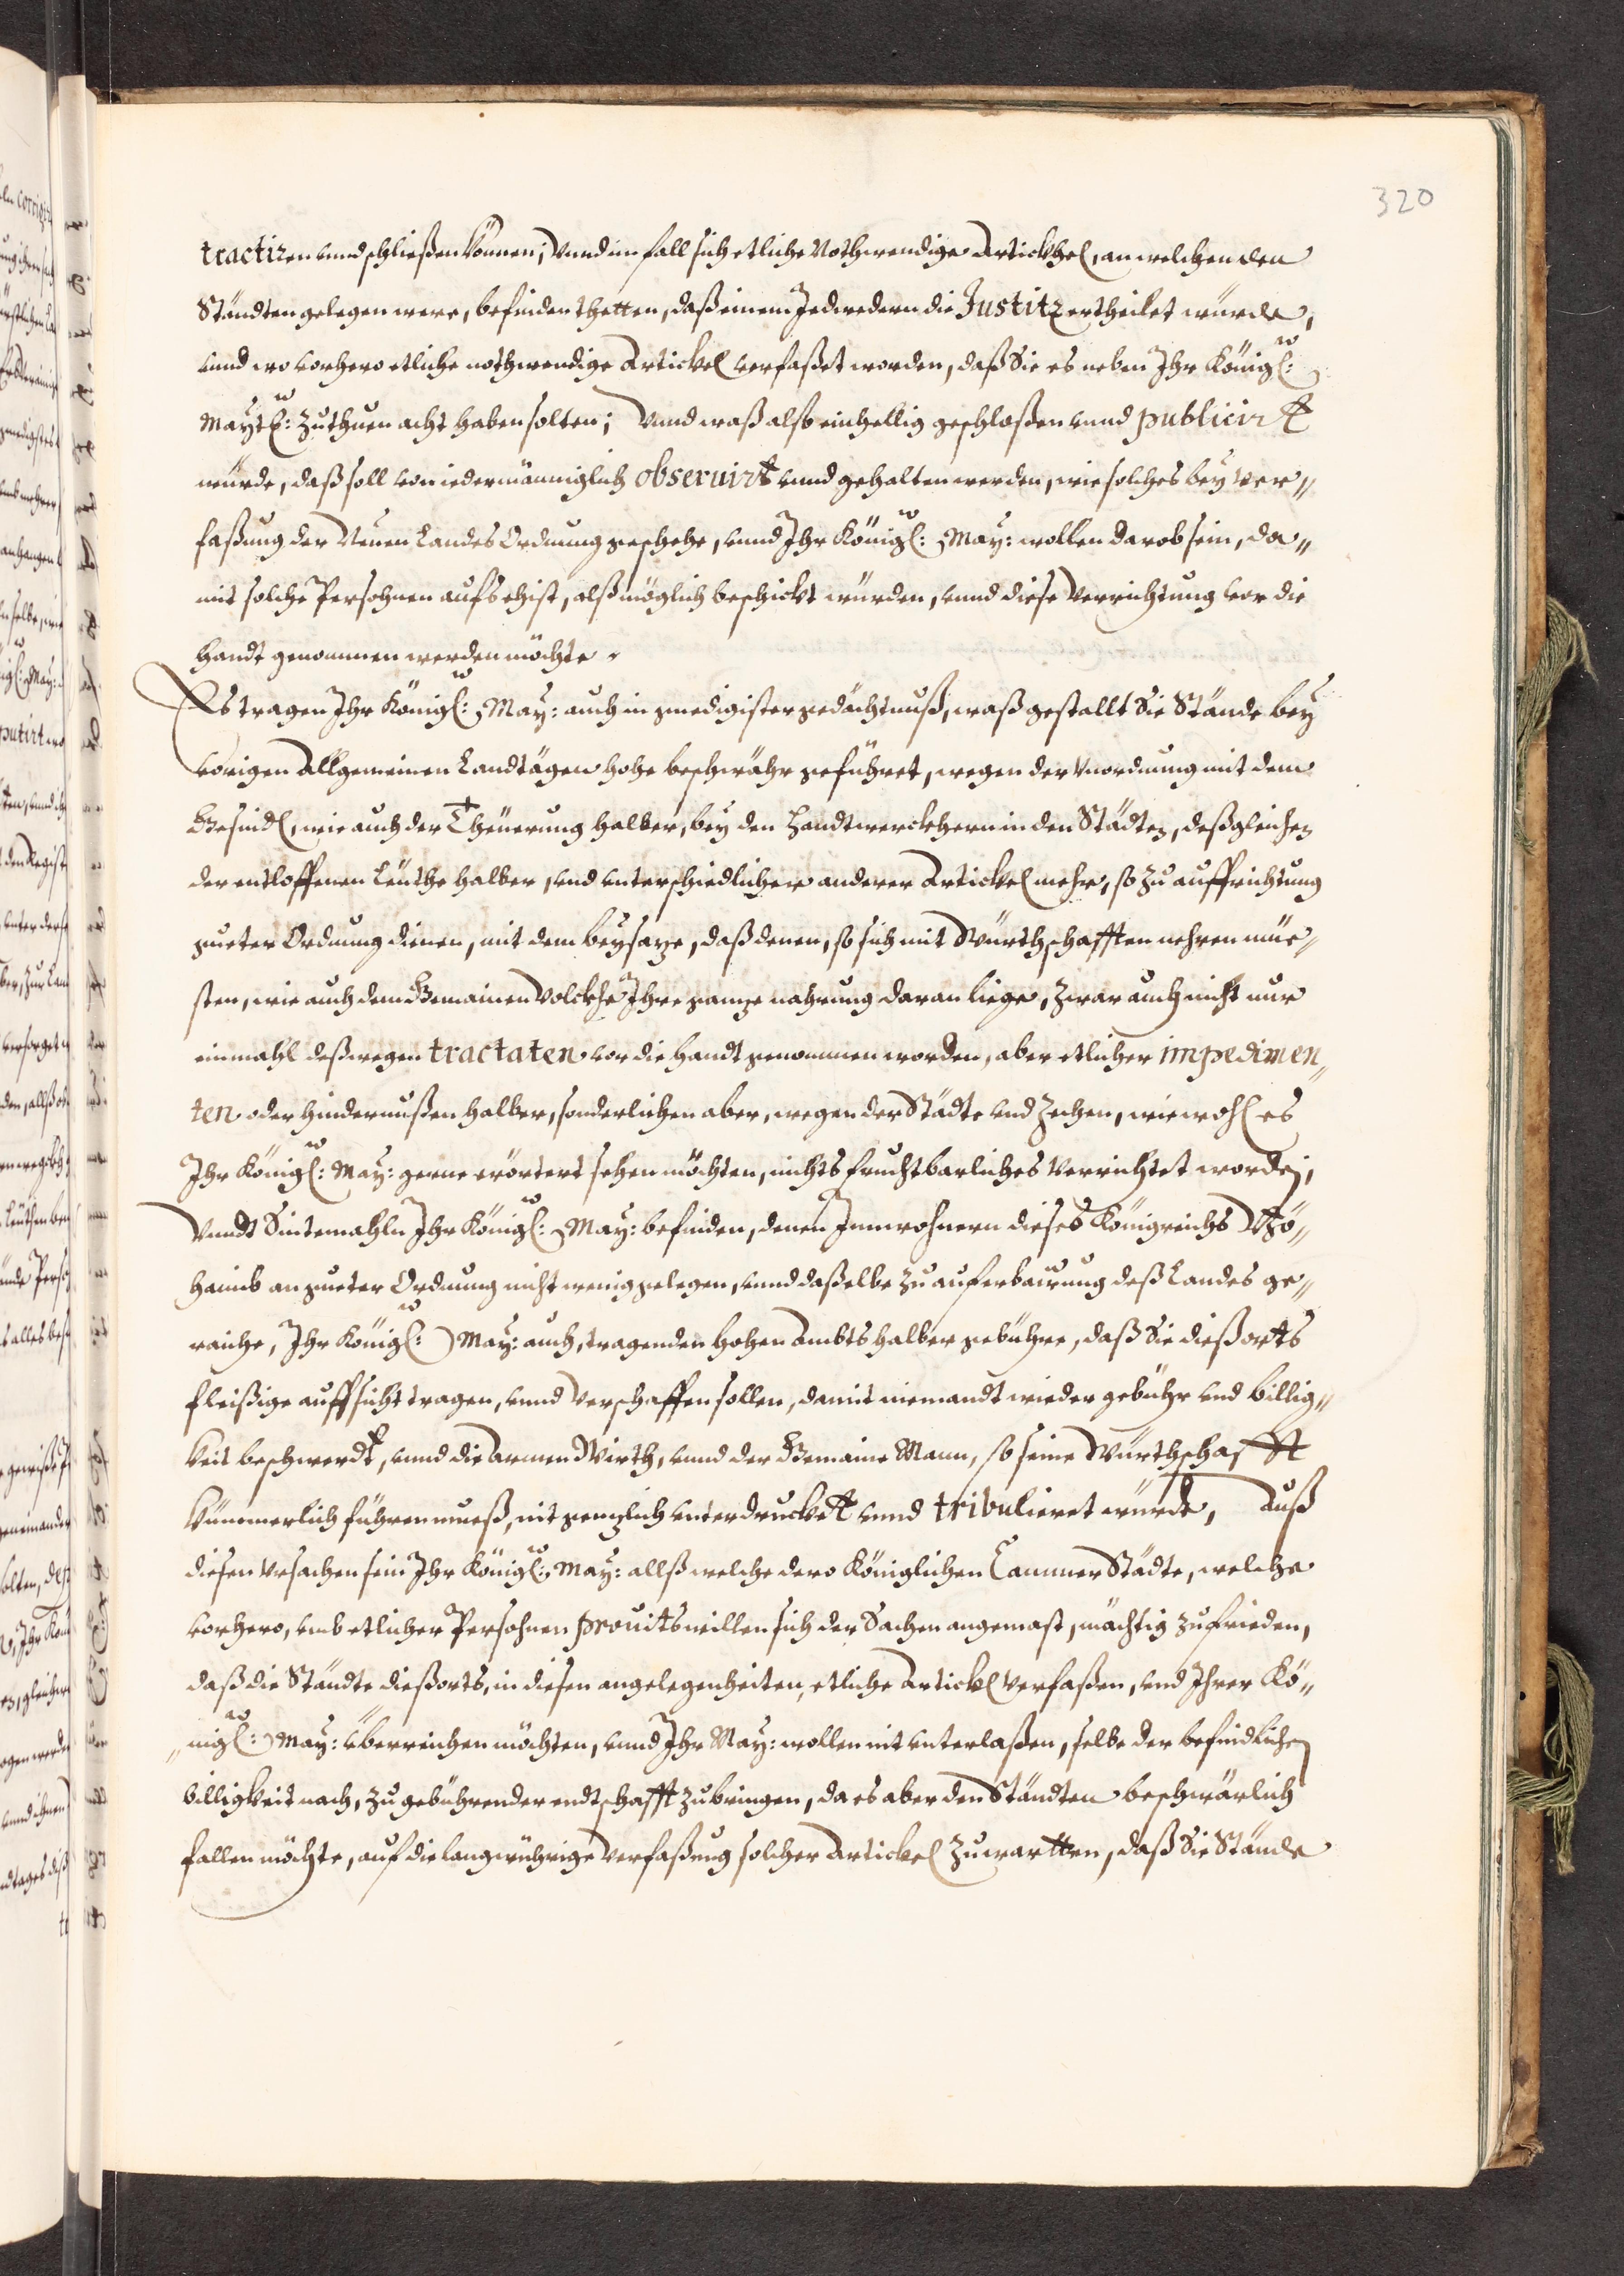 320
tractiren vnnd schließen können; Vnnd im fall sich etliche Nothwendige Artickhel, an welchen den
Ständten gelegen were, befinden thetten, daß einem Jedwedern die Justitz ertheilet würde,
vnnd wo vorhero etliche nothwendige Artickel verfaßet worden, daß Sie es neben Ihr Königl:
Maytl: zuthuen acht haben solten; Vnnd waß also einhellig geschloßen vnnd publicirt
würde, daß soll von iedermänniglich obseruirt vnnd gehalten werden, wie solches bey ver„
faßung der Neuen Landes Ordnung geschehe, vnnd Ihr Königl: May: wollen darob sein, da„
mit solche Persohnen aufs ehist, alß möglich beschickt würden, vnnd diese Verrichtung vor die
handt genommen werden möchte.
Es tragen Ihr Königl: May: auch in gnedigister gedächtnuß, waß gestallt Sie Stände bey
vorigen Allgemeinen Landtägen hohe beschwähr geführet, wegen der Vnordnung mit dem
Gesindl, wie auch der Theüerung halber, bey den Handtwerckhern in den Städten, deßgleichen
der entloffenen Leüthe halber, vnd vnterschiedlicher anderer Artickel mehr, so zu auffrichtung
gueter Ordnung dienen, mit dem beysatze, daß denen, so sich mit Würthschafften nehren müe„
sten, wie auch dem Gemainen Volckhe Ihre gantze nahrung daran liege, zwar auch nicht nur
einmahl deßwegen tractaten vor die handt genommen worden, aber etlicher impedimen„
ten oder hindernußen halber, sonderlichen aber, wegen der Städte vnd Zechen, wiewohl es
Ihr Königl: May: gerne erörtert sehen möchten, nichts fruchtbarliches Verrichtet worden,
Vnndt Sintemahln Ihr Königl: May: befinden, denen Innwohnern dieses Königreichs Bö„
haimb an gueter Ordnung nicht wenig gelegen, vnnd daßelbe zu auferbawung deß Landes ge„
raiche, Ihr Königl: May: auch, tragenden hohen Ambts halber gebühre, daß Sie dießorts
fleißige auffsicht tragen, vnnd Verschaffen sollen, damit niemandt wieder gebühr vnd billig„
keit beschwerdt, vnnd die Armen Wirth, vnnd der Gemaine Mann, so seine Würthschafft
kümmerlich führen mueß, nit gentzlich vnterdruckt vnnd tribulieret würde, Auß
diesen Vrsachen sein Ihr Königl: May: allß welche dero Königlichen Cammer Städte, welche
vorhero, vmb etlicher Persohnen prouits willen sich der Sachen angemast, mächtig zufrieden,
daß die Ständte dießorts, in diesen angelegenheiten, etliche Artickl Verfaßen, vnd Ihrer Kö„
„nigl: May: überreichen möchten, vnnd Ihr May: wollen nit vnterlaßen, selbe der befindlichen
billigkeit nach, zu gebührender endtschafft zubringen, da es aber den Ständten beschwärlich
fallen möchte, auf die langwührige Verfaßung solcher Artickel zuwartten, daß Sie Stände